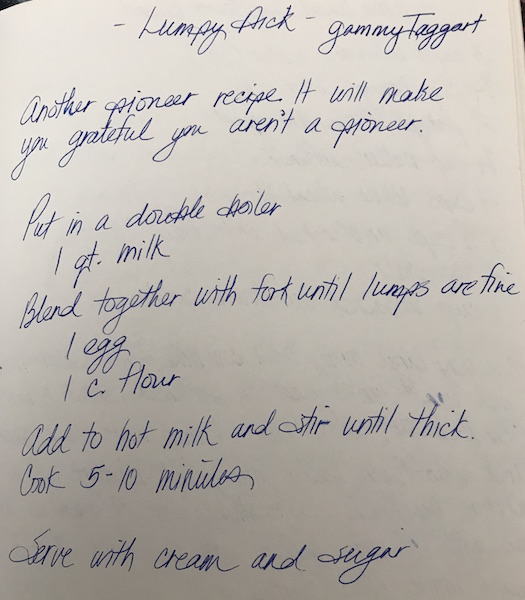 - Lumpy Dick - gammy Taggart
Another pioneer recipe. It will make
you grateful you aren't a pioneer.
Put in a double boiler
1 qt. milk
Blend together with fork until lumps are fine
1 egg
1 c. flour
Add to hot milk and stir until thick.
Cook 5-10 minutes
Serve with cream and sugar